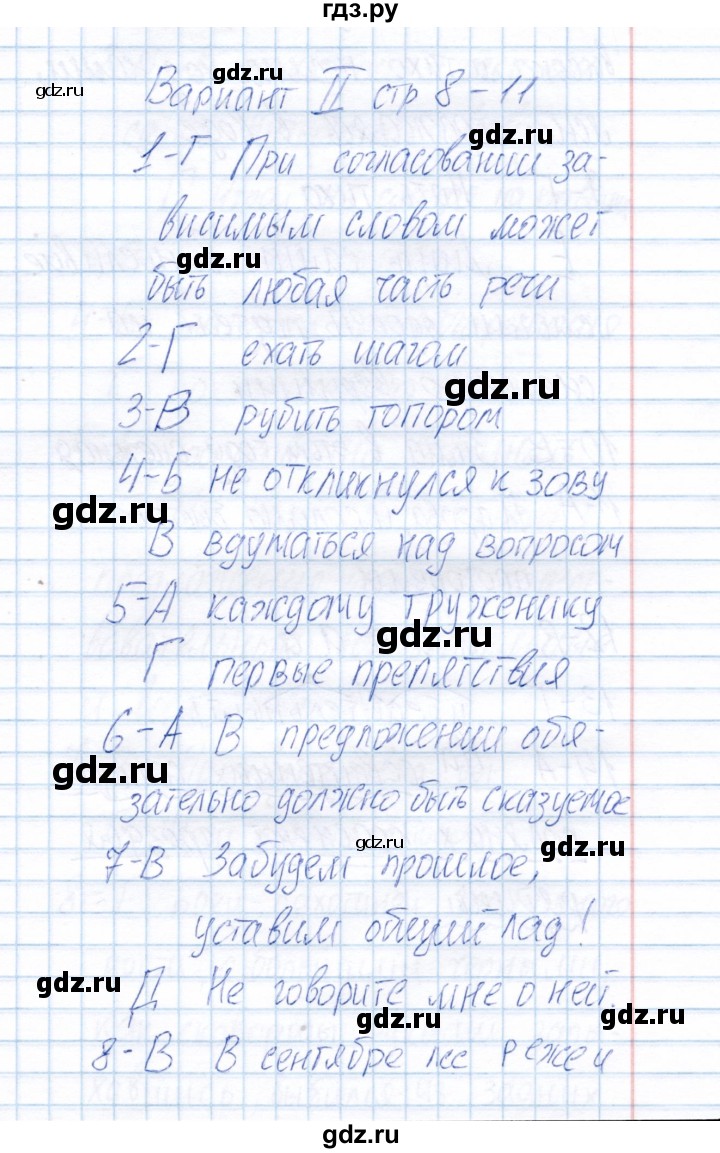 гдз.ру
gdz.ru
gdz.ru
Вариант II стр 8-11
gdz.ru
1-Г При согласовании за-
висимым словом может
gdz.ru
быть любая часть речи
2-Г ехать шагом
gdz.ru
3-В рубить топором
4-Б не откликнулся к зову
gdz.ru
В вдуматься над вопросом
5-А каждому труженику
gdz.ru
Г первые препятствия
6-А В предложении обя-
gdz.ru
зательно должно быть сказуемое
gdz.ru
gdz.ru
7-В Забудем прошлое,
уставим общий лад!
gdz.ru
Д Не говорите мне о ней.
gdz.ru
gdz.ru
8-В В сентябре лес режен
gdz.ru